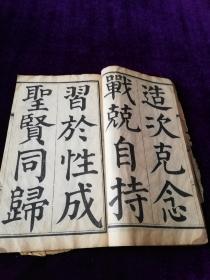 造次克念
戰兢自持
習於性成
聖賢同歸